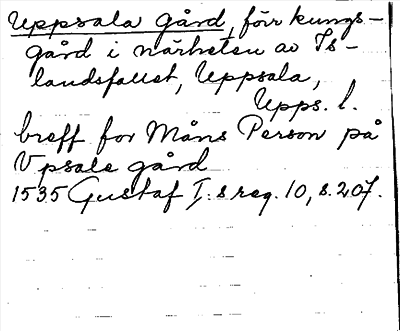 Uppsala gård, förr kungs-
gård i närheten av Is-
landsfallet, Uppsala,
Upps. l.
breff for Måns Person på
Vpsale gård
1535 Gustaf I:s reg. 10, s. 207.